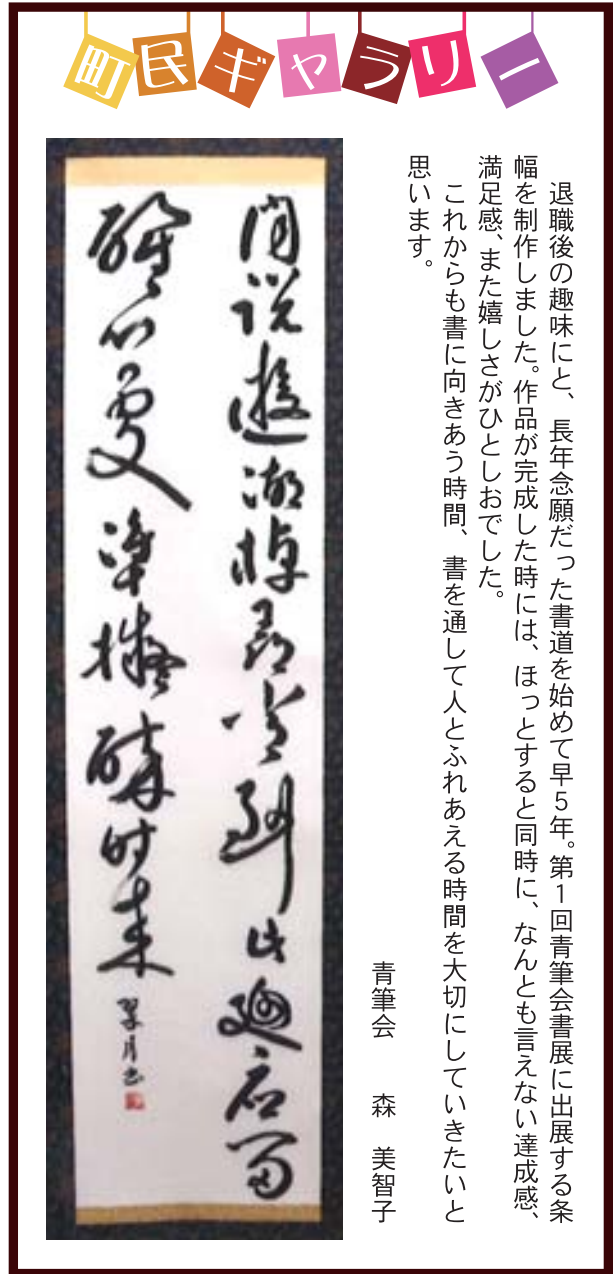 町民ギャラリー
　退職後の趣味にと、長年念願だった書道を始めて早５年。第１回青筆会書展に出展する条
幅を制作しました。作品が完成した時には、ほっとすると同時に、なんとも言えない達成感、
満足感、また嬉しさがひとしおでした。
　これからも書に向きあう時間、書を通して人とふれあえる時間を大切にしていきたいと
思います。
青筆会　森　美智子
聞説遊湖棹尋常到此廻応留
醒心處準擬酔時来
翠月書